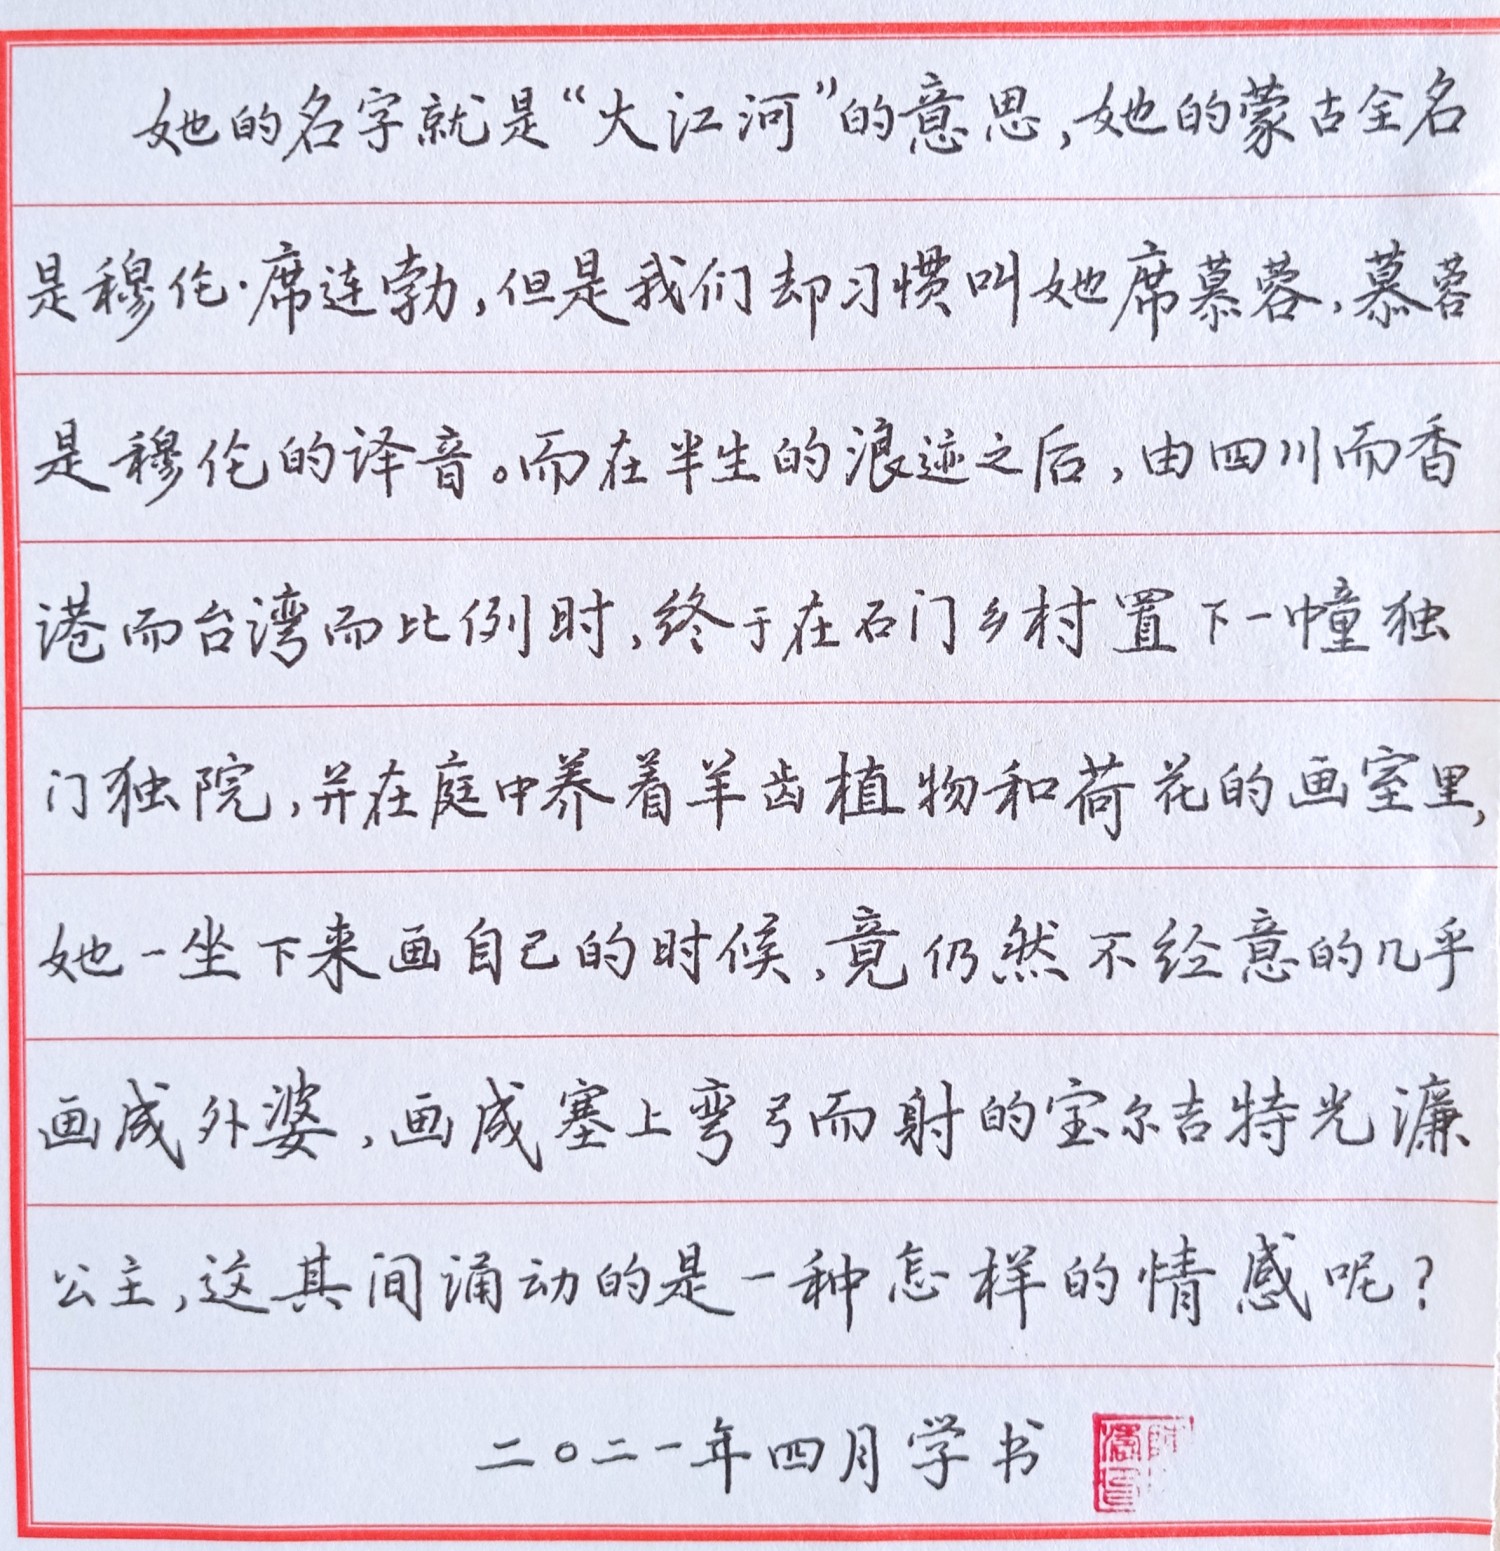 她的名字就是“大江河”的意思,她的蒙古全名
是穆伦·席连勃,但是我们却习惯叫她席慕蓉,慕蓉
是穆伦的译音。而在半生的浪迹之后,由四川而香
港而台湾而比例时,终于在石门乡村置下一幢独
门独院,并在庭中养着羊齿植物和荷花的画室里,
她一坐下来画自己的时候,竟仍然不经意的几乎
画成外婆,画成塞上弯弓而射的宝尔吉特光濂
公主,这其间涌动的是一种怎样的情感呢?
二〇二一年四月学书